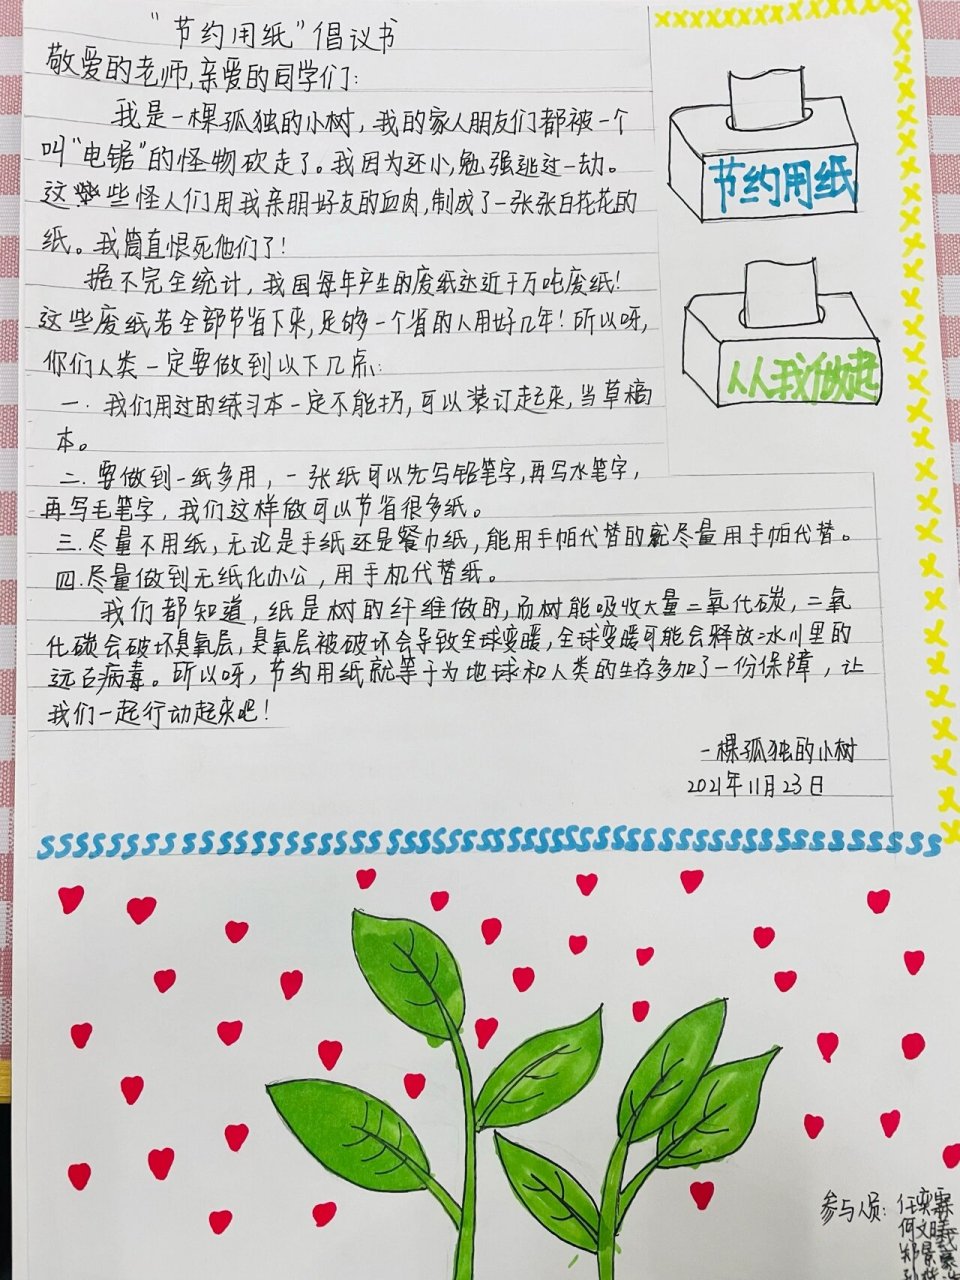 “节约用纸”倡议书
敬爱的老师,亲爱的同学们:
我是一棵孤独的小树，我的家人朋友们都被一个
叫“电锯”的怪物砍走了。我因为还小,勉强逃过一劫。
这些怪人们用我亲朋好友的血肉,制成了一张张白花花的
纸。我简直恨死他们了!
据不完全统计，我国每年产生的废纸达近千万吨废纸!
这些废纸若全部节省下来,足够一个省的人用好几年!所以呀,
你们人类一定要做到以下几点:
一.我们用过的练习本一定不能扔,可以装订起来,当草稿
本。
二.要做到一纸多用，一张纸可以先写铅笔字,再写水笔字,
再写毛笔字，我们这样做可以节省很多纸。
三.尽量不用纸,无论是手纸还是餐巾纸,能用手帕代替的就尽量用手帕代替。
四.尽量做到无纸化办公,用手机代替纸。
我们都知道,纸是树的纤维做的,而树能吸收大量二氧化碳,二氧
化碳会破坏臭氧层,臭氧层被破坏会导致全球变暖,全球变暖可能会释放冰川里的
远古病毒。所以呀,节约用纸就等于为地球和人类的生存多加了一份保障,让
我们一起行动起来吧!
一棵孤独的小树
2021年11月23日
节约用纸
人人我做起
参与人员:任奕霖
何文曦
郑景